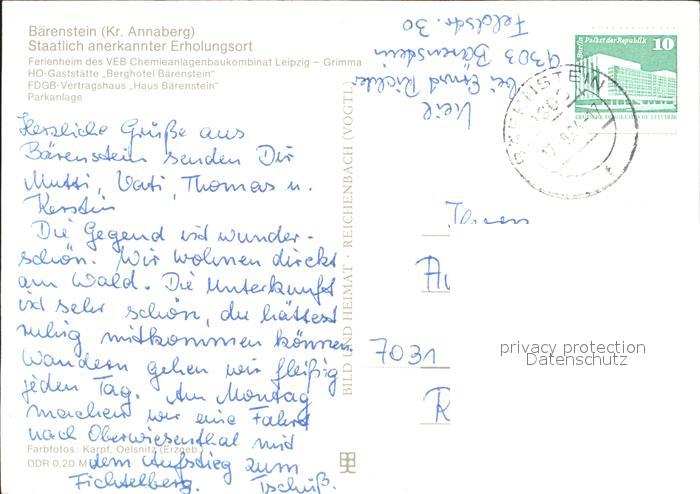 Bärenstein (Kr. Annaberg)
Staatlich anerkannter Erholungsort
Ferienheim des VEB Chemieanlagenbaukombinat Leipzig – Grimma
HO-Gaststätte „Berghotel Bärenstein"
FDGB-Vertragshaus „Haus Bärenstein"
Parkanlage
Herzliche Grüße aus
Bärenstein senden Dir
Mutti, Vati, Thomas u.
Kerstin
Die Gegend ist wunder-
schön. Wir wohnen direkt
am Wald. Die Unterkunft
ist sehr schön, du hättest
ruhig mitkommen können.
Wandern gehen wir fleißig
jeden Tag. Am Montag
machen wir eine Fahrt
nach Oberwiesenthal mit
dem Aufstieg zum
Fichtelberg. Tschüß.
Farbfotos: Karpf, Oelsnitz (Erzgeb.)
DDR 0,20 M
BILD UND HEIMAT · REICHENBACH (VOGTL)
bei Ernst Richter
9303 Bärenstein
Feldstr. 30
Berlin, Palast der Republik
10
DEUTSCHE DEMOKRATISCHE REPUBLIK
BÄRENSTEIN
7031
privacy protection
Datenschutz